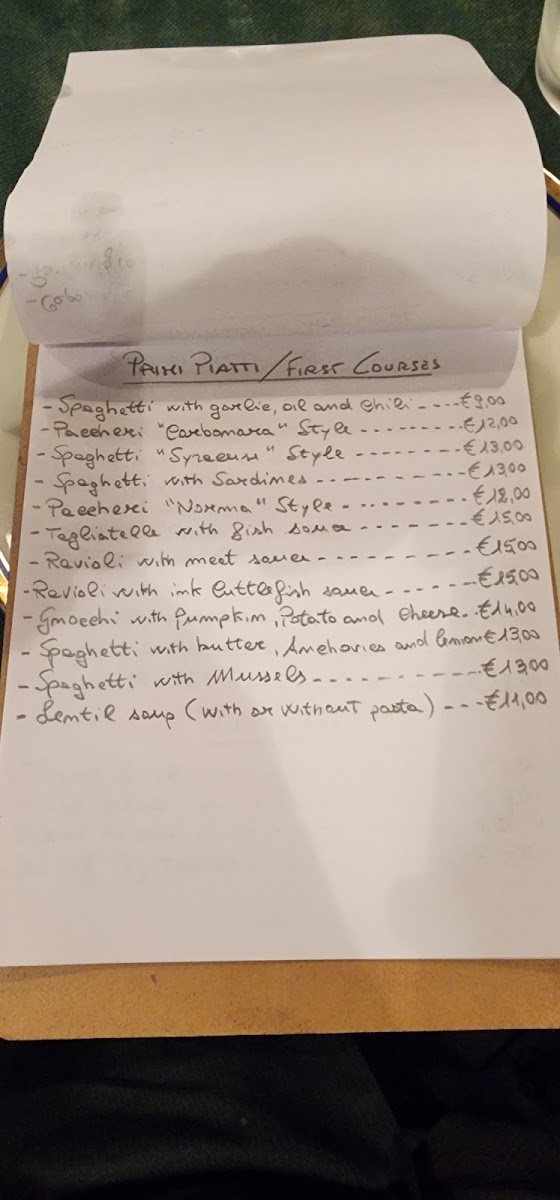 PRIMI PIATTI / FIRST COURSES
- Spaghetti with garlic, oil and chili - - - - €9,00
- Paccheri "Carbonara" Style - - - - - - - - - €12,00
- Spaghetti "Syracuse" Style - - - - - - - - - €13,00
- Spaghetti with Sardines - - - - - - - - - - €13,00
- Paccheri "Norma" Style - - - - - - - - - - €12,00
- Tagliatelle with fish sauce - - - - - - - - €15,00
- Ravioli with meat sauce - - - - - - - - - €15,00
- Ravioli with ink cuttlefish sauce - - - - - - €15,00
- Gnocchi with Pumpkin, Potato and cheese - €14,00
- Spaghetti with butter, Anchovies and lemon €13,00
- Spaghetti with Mussels - - - - - - - - - - €13,00
- Lentil soup (with or without pasta) - - - €11,00